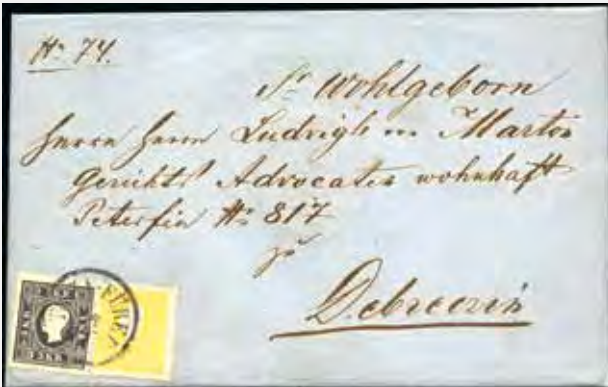 No 74.
Sr Wohlgeborn
Herrn Herrn Ludvigh Marton
Gerichts Advocaten wohnhaft
Peterfia No 817
zu
Debreczin